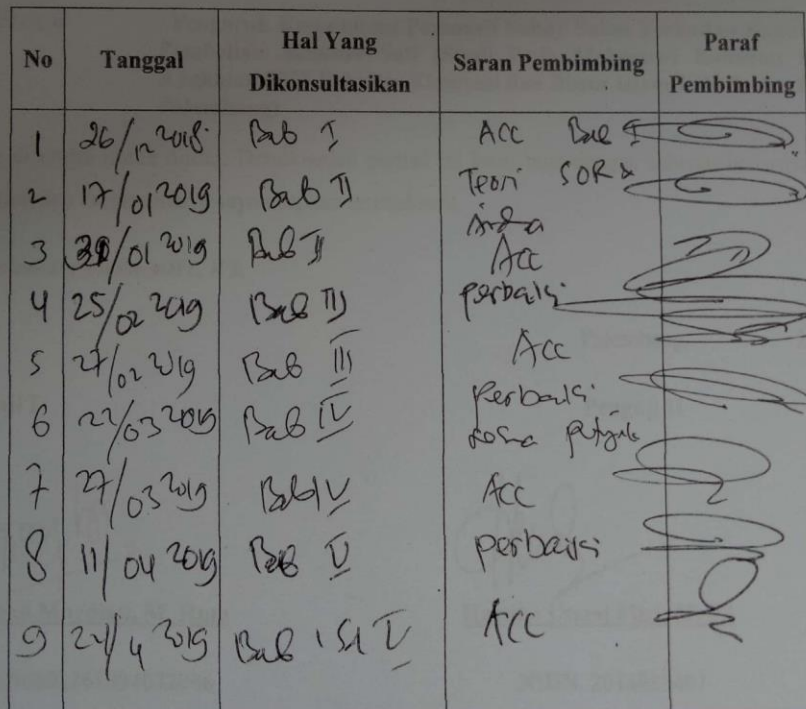 No Tanggal Hal Yang Dikonsultasikan Saran Pembimbing Paraf Pembimbing
1 26/12 2018 Bab I ACC Bab I
2 17/01 2019 Bab II Teori SOR &
3 31/01 2019 Bab II Acc
4 25/02 2019 Bab III perbaiki
5 27/02 2019 Bab III Acc
6 22/03 2019 Bab IV perbaiki
7 27/03 2019 Bab IV Acc
8 11/04 2019 Bab V perbaiki
9 22/4 2019 Bab V ACC